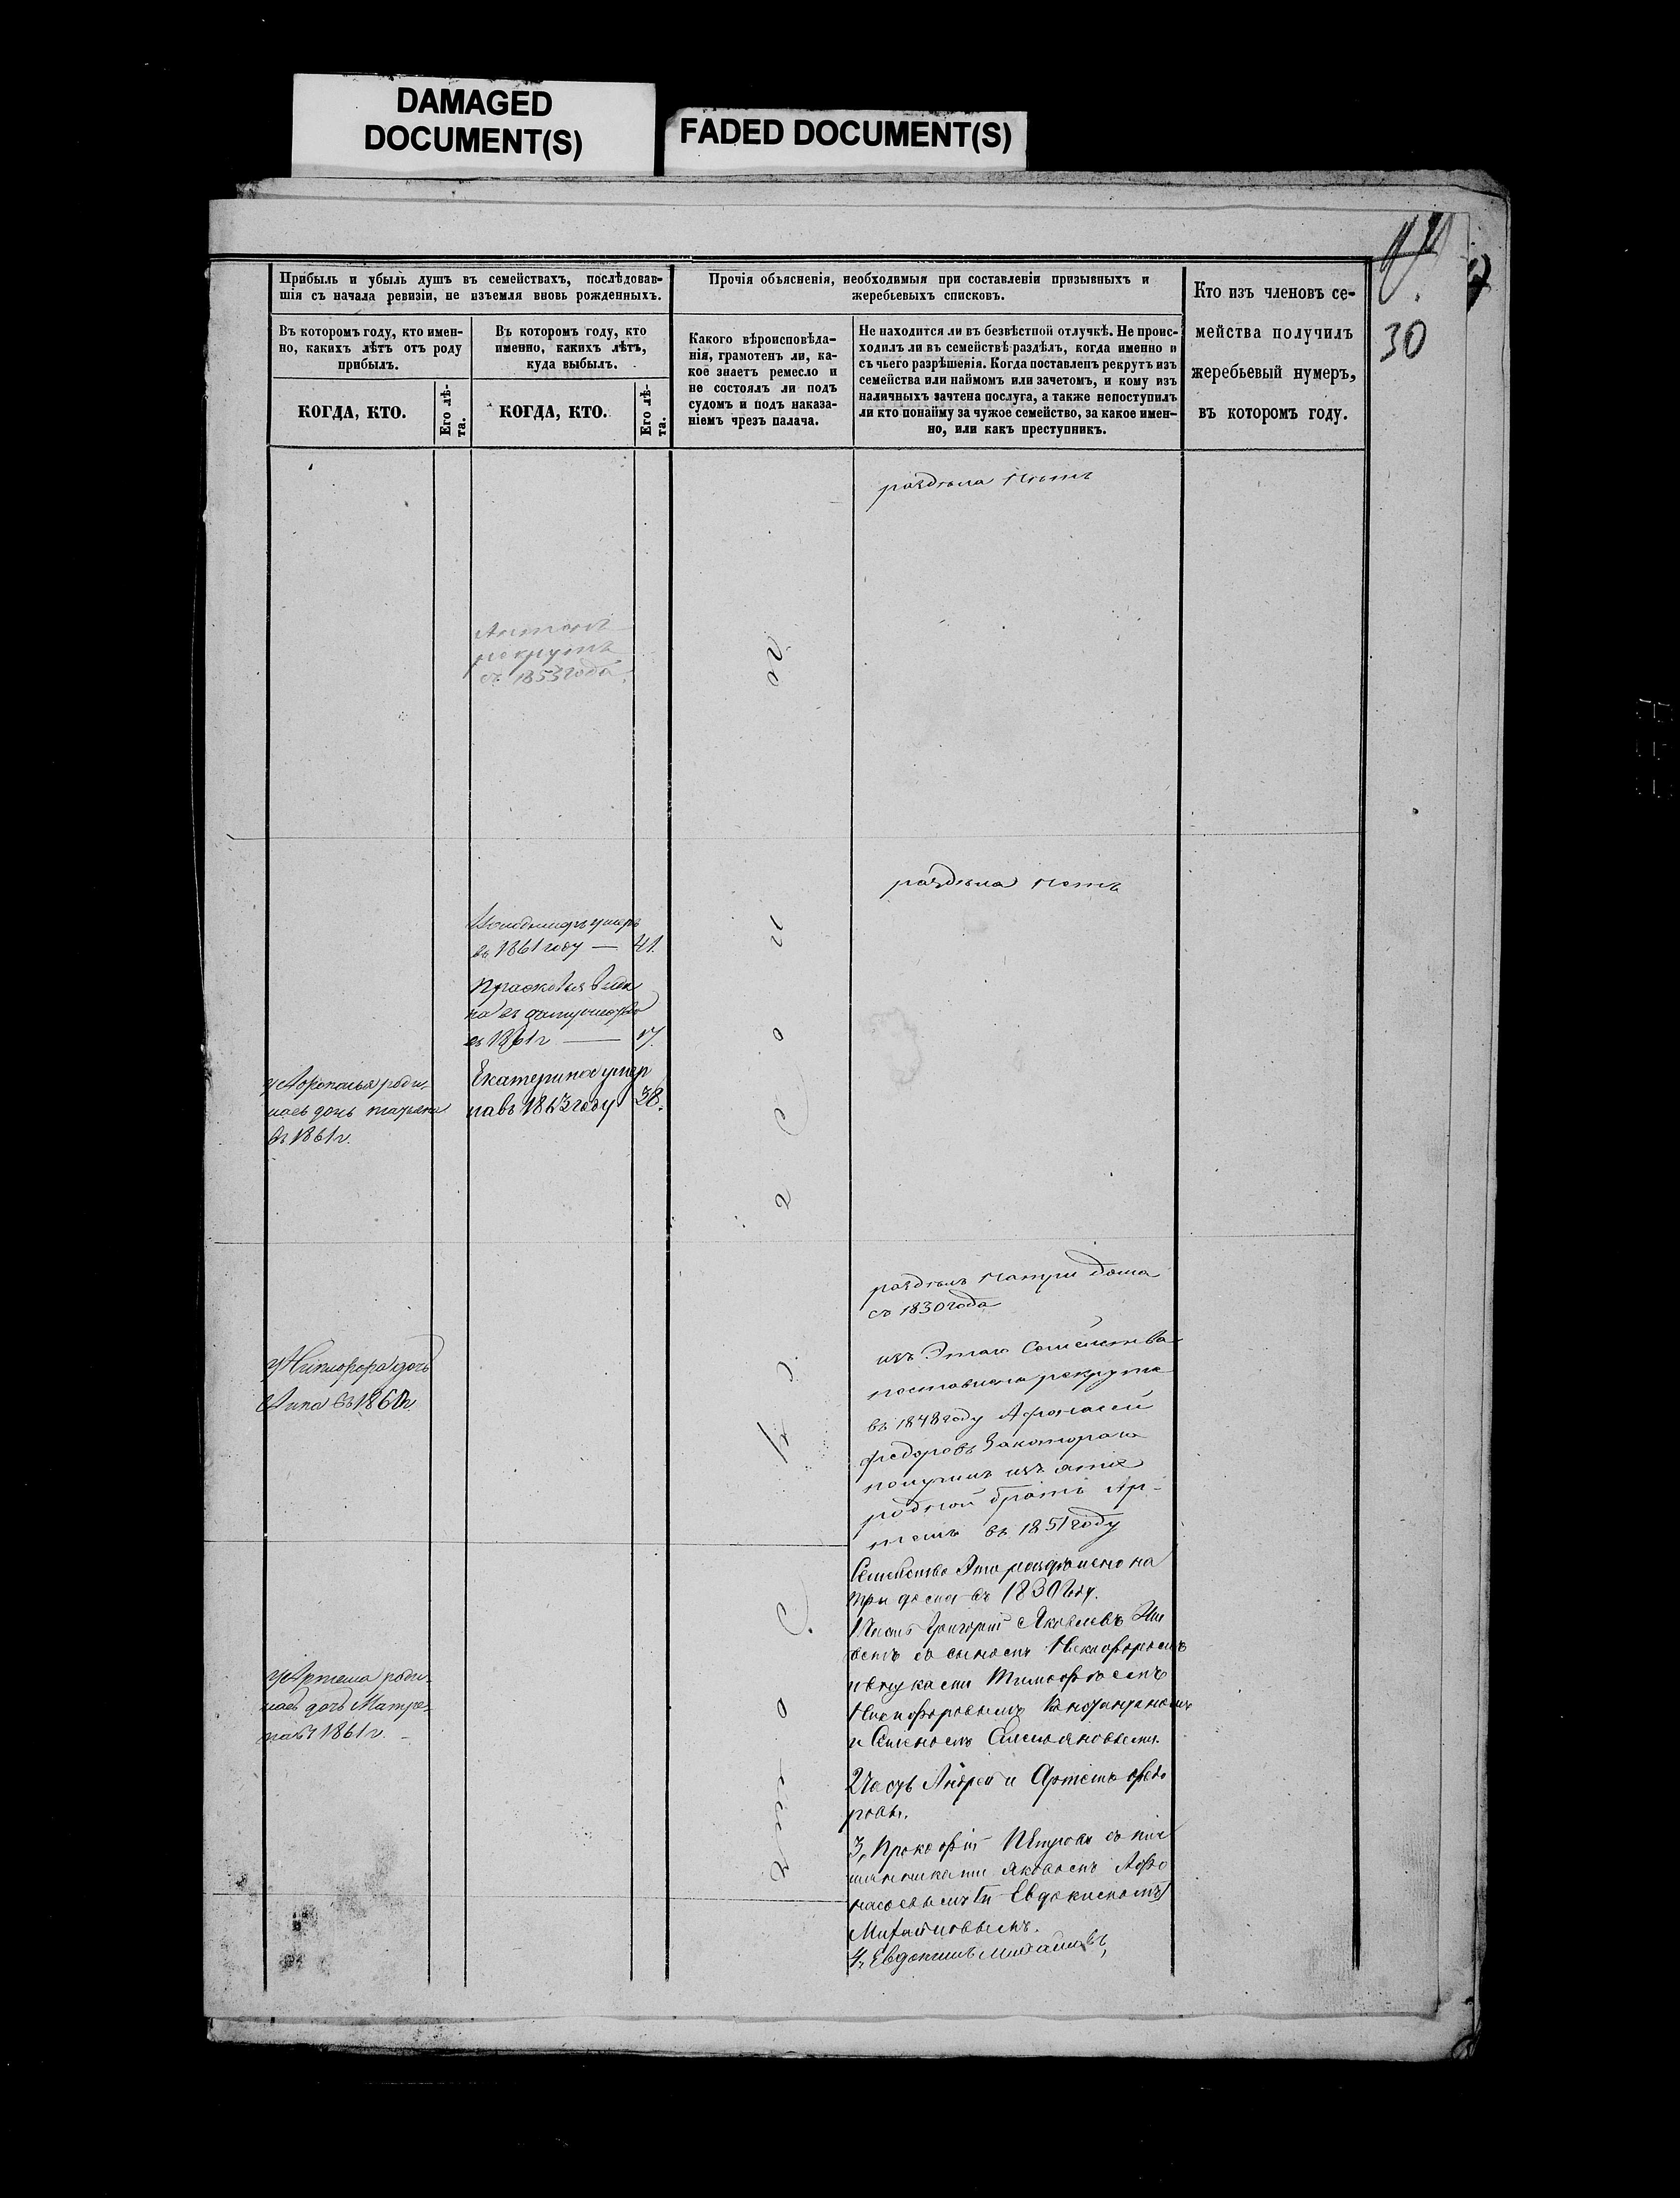 DAMAGED
DOCUMENT(S)
FADED DOCUMENT(S)
30
Прибыль и убыль душъ въ семействахъ, послѣдовав-
шія съ начала ревизіи, не изъемля вновь рожденныхъ.
Прочія объясненія, необходимыя при составленіи призывныхъ и
жеребьевыхъ списковъ.
Кто изъ членовъ се-
мейства получилъ
жеребьевый нумеръ,
въ которомъ году.
Въ которомъ году, кто имен-
но, какихъ лѣтъ отъ роду
прибылъ.
Въ которомъ году, кто
именно, какихъ лѣтъ,
куда выбылъ.
Какого вѣроисповѣда-
нія, грамотенъ ли, ка-
кое знаетъ ремесло и
не состоялъ ли подъ
судомъ и подъ наказа-
ніемъ чрезъ палача.
Не находится ли въ безвѣстной отлучкѣ. Не проис-
ходилъ ли въ семействѣ раздѣлъ, когда именно и
съ чьего разрѣшенія. Когда поставленъ рекрутъ изъ
семейства или наймомъ или зачетомъ, и кому изъ
наличныхъ зачтена послуга, а также непоступилъ
ли кто понайму за чужое семейство, за какое имен-
но, или какъ преступникъ.
КОГДА, КТО.
Его лѣ-
та.
КОГДА, КТО.
Его лѣ-
та.
раздѣла нѣтъ
Антонъ
рекрутъ
съ 1853 года.
раздѣла нетъ
умеръ
въ 1861 году — 41.
Прасковья выда
на въ замужество
въ 1861 г — 17.
Екатерина умер
ла въ 1863 году 38.
роди-
лась дочь
въ 1861 г.
раздѣлъ натри дома
съ 1830 года
изъ Этаго Семейства
поставлена рекрута
въ 1848 году Афонасей
Федоровъ Закоторого
получилъ
родной братъ Ар-
темъ въ 1851 году
у Никифора дочь
Анна въ
Семейство Это раздѣлено на
три дома въ 1830 году.
Григорій Яковлевъ
съ сыномъ Никифоромъ
и внуками Тимофѣемъ
Никифоровымъ
и Семеномъ
у Артема роди-
лась дочь Матре-
на въ 1861 г.
2 Часть Андрей и Артемъ Федо
ровы.
3, Прокофій Петровъ съ пле
мянниками Яковомъ Афо
насьевымъ и Евдокимомъ
Михайловымъ.
4, Евдокимъ Михайловъ,